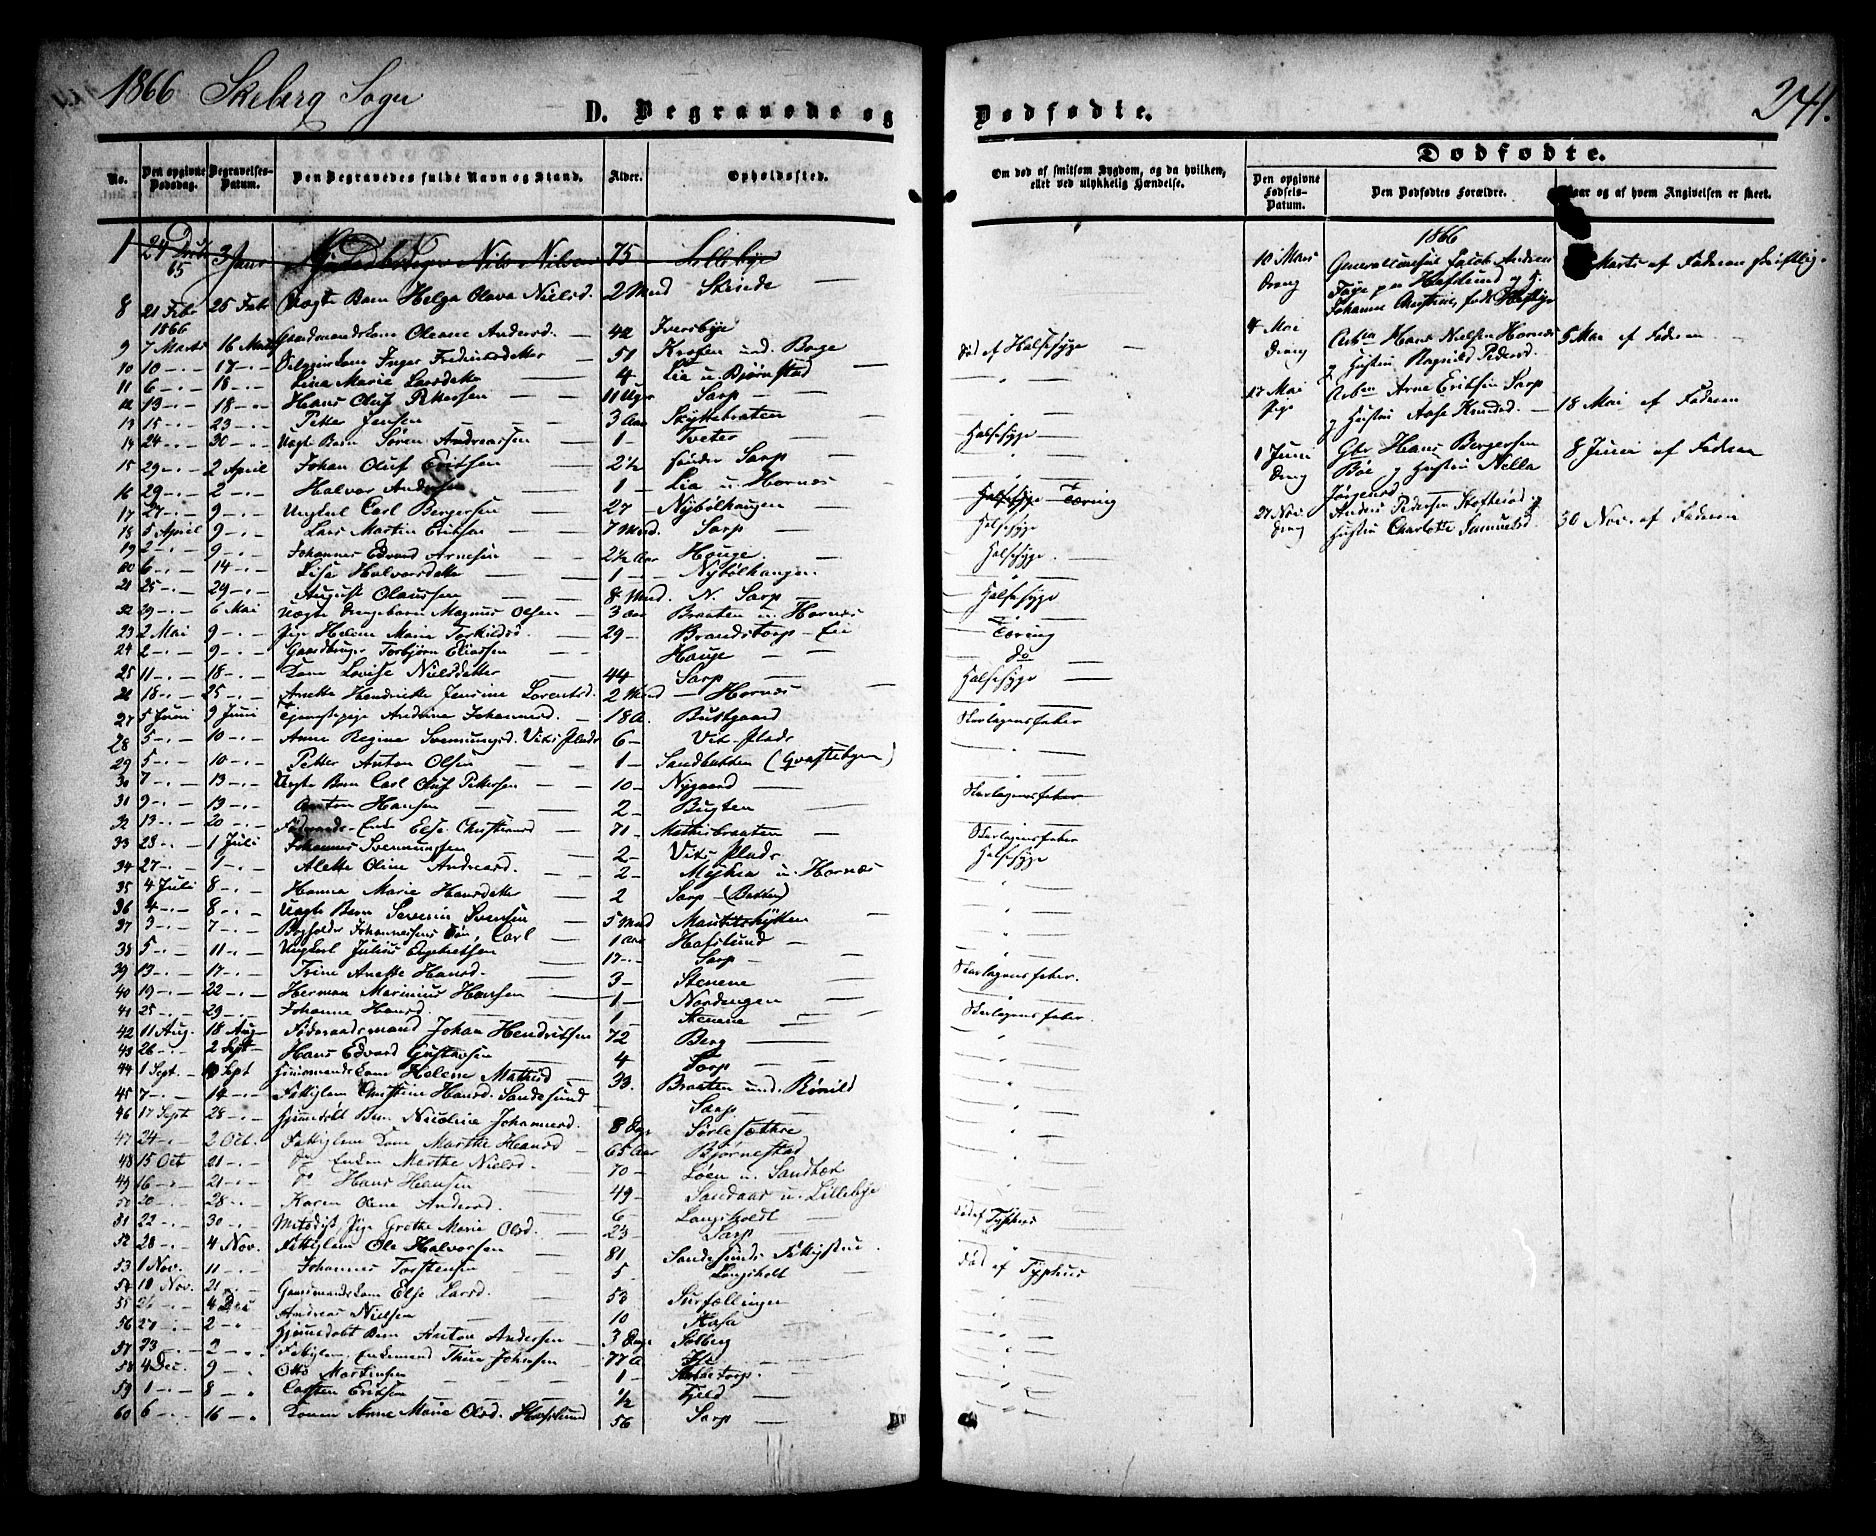 1866 Skeberg Sogn
241.
D. Begravede og
Dødfødte.
No.
Den opgivne Dødsdag.
Begravelses-Datum.
Den Begravedes fulde Navn og Stand.
Alder.
Opholdssted.
Om død af smitsom Sygdom, og da hvilken, eller ved ulykkelig Hændelse.
Dødfødte.
Den opgivne Fødsels-Datum.
Den Dødfødtes Forældre.
og af hvem Angivelsen er skeet.
1 24 65 3 Janr Nils Nilsen 75 Lillebye
8 21 Febr 1866 25 Febr Uægte Barn Helga Olava Nielsd. 2 Mnd Skiøde
9 7 Marts 16 Marts Gaardmands Kone Oleane Andersd. 42 Iversbye
10 10 17 Inger Fredriksdatter 51 und. Borge Død af Halsesyge
11 6 18 Lina Marie Larsdatter 4 Lia u. Bjørnstad
12 13 18 Hans Oluf Pettersen 11 Uger Sarp
13 15 23 Petter Jensen 3 Aar Skyttebraaten
14 24 30 Uægte Barn Søren Andreassen 1 Tveter Halsesyge
15 29 2 April Johan Oluf Eriksen 2½ søndre Sarp
16 29 2 Halvor Andersen 1 Lia u. Hornes
17 27 9 Ungkarl Carl Bergersen 27 Nybølhaugen Tæring
18 5 April 9 Lars Martin Eriksen 7 Mnd. Sarp Halsesyge
19 2 9 Johannes Edvard Arnesen 2½ Aar Houge Halsesyge
20 6 14 Lise Halvorsdatter 1 Nybølhaugen
21 25 29 August Olaussen 8 Mnd. N. Sarp Halsesyge
22 29 6 Mai Uægte Drengebarn Magnus Olsen 3 Aar Braaten u. Hornes
23 2 Mai 9 Pige Helene Marie Torkildsd. 29 Brandstorp Eie Tæring
24 2 9 Gaardbruger Torbjørn Eliassen Hauge do
25 11 18 Kone Lovise Nielsdatter 44 Sarp Halsesyge
26 18 25 Anette Hendrikke Jensine Lorentsd. 2 Mnd Hornes
27 5 Juni 9 Juni Tjenestepige Andrine Johannesd. 18 A. Buskgaard Skarlagensfeber
28 5 10 Anne Regine Svenningsd. Vits Plads 6 Vits Plads
29 5 10 Petter Anton Olsen 1 Sandbakken
30 7 13 Uægte Barn Carl Oluf Pettersen 10 Nygaard
31 9 13 Anton Hansen 2 Bugten Skarlagensfeber
32 13 20 Føderaads Enke Else Christiansd 71 Mathisbraaten
33 28 1 Juli Johannes Svenningsen 2 Vits Plads Skarlagensfeber
34 27 1 Alette Oline Andreasd. 2 u. Hornæs Halsesyge
35 4 Juli 8 Hanna Marie Hansdatter 2 Sarp (Bakken)
36 4 8 Uægte Barn Severin Svensen 5 Mnd
37 3 7 Bogholder Johannessens Søn, Carl 1 Aar Hafslund
38 5 11 Ungkarl Julius 17 Sarp
39 13 17 Trine Anette Hansd. 3 Stenene Skarlagensfeber.
40 19 22 Herman Marinius Hansen 1 Nordengen
41 25 29 Johanne Hansd. 1 Stenene Skarlagensfeber.
42 11 Aug. 18 Aug Føderaadsmand Johan Hendriksen 72 Berg
43 26 2 Sept Hans Edvard Gustavsen 4 Sarp
44 1 Sept. Sept Huusmands Kone Helene Mathisd 33. Braaten und. Rørvild
45 7 14 Fattiglem Christine Hansd. Sandesund Sarp
46 17 Sept 28 Hjemmedøbt Barn Nicoline Johannesd. 8 Dage Sørlesæthre
47 24 2 Oct. Fattiglem Kone Marthe Hansd 65 Aar Bjørnestad
48 15 Oct 21 do Enken Marthe Nielsd. 70 Løen u. Sandbæk
49 16 21 do Hans Hansen 49 Sandaas u. Lillebye
50 20 28 Karen Olene Andersd. 6 Langskoldt
51 22 30 Metodist, Pige Grethe Marie Olsd. 23 Sarp Død af Typhus
52 28 4 Nov. Fattiglem Ole Halvorsen 81 Sandesunds
53 1 Nov. 11 Johannes Torstensen 5 Langskolt Død af Typhus
54 10 Nov. 21 Gaardmands Kone Else Larsd. 53 Surfællingen
55 26 4 Dec Andreas Nielsen 10 Aasa
56 27 2 Hjemmedøbt Barn Anton Andersen 3 Dage Solberg
57 23 2 Fattiglem, Enkemand Thue Johnsen 77 A Ise
58 4 Dec. 9 Otto Martinsen 1
59 1 8 Carsten Eriksen ½ Fjeld
60 6 16 Konen Anne Marie Olsd. Hafslund 56 Sarp
1866
10 Mars Dreng Generalconsul Jacob Andreas Faye paa Hafslund og Johanne Christine, født Heftye Marts af Faderen skriftlig.
4 Mai Dreng Arb Hans Nielsen Hornæs og Hustru Ragnild Pedersd. 5 Mai af Faderen
17 Mai Pige Arbm Arne Eriksen Sarp og Hustru Aase Knudsd. 18 Mai af Faderen
1 Juni Dreng Gbr Hans Bergersen Bøe og Hustru Nella Jørgensd. 8 Juni af Faderen
27 Nov Dreng Anders Pedersen og Hustru Charlotte Samuelsd. 30 Nov. af Faderen